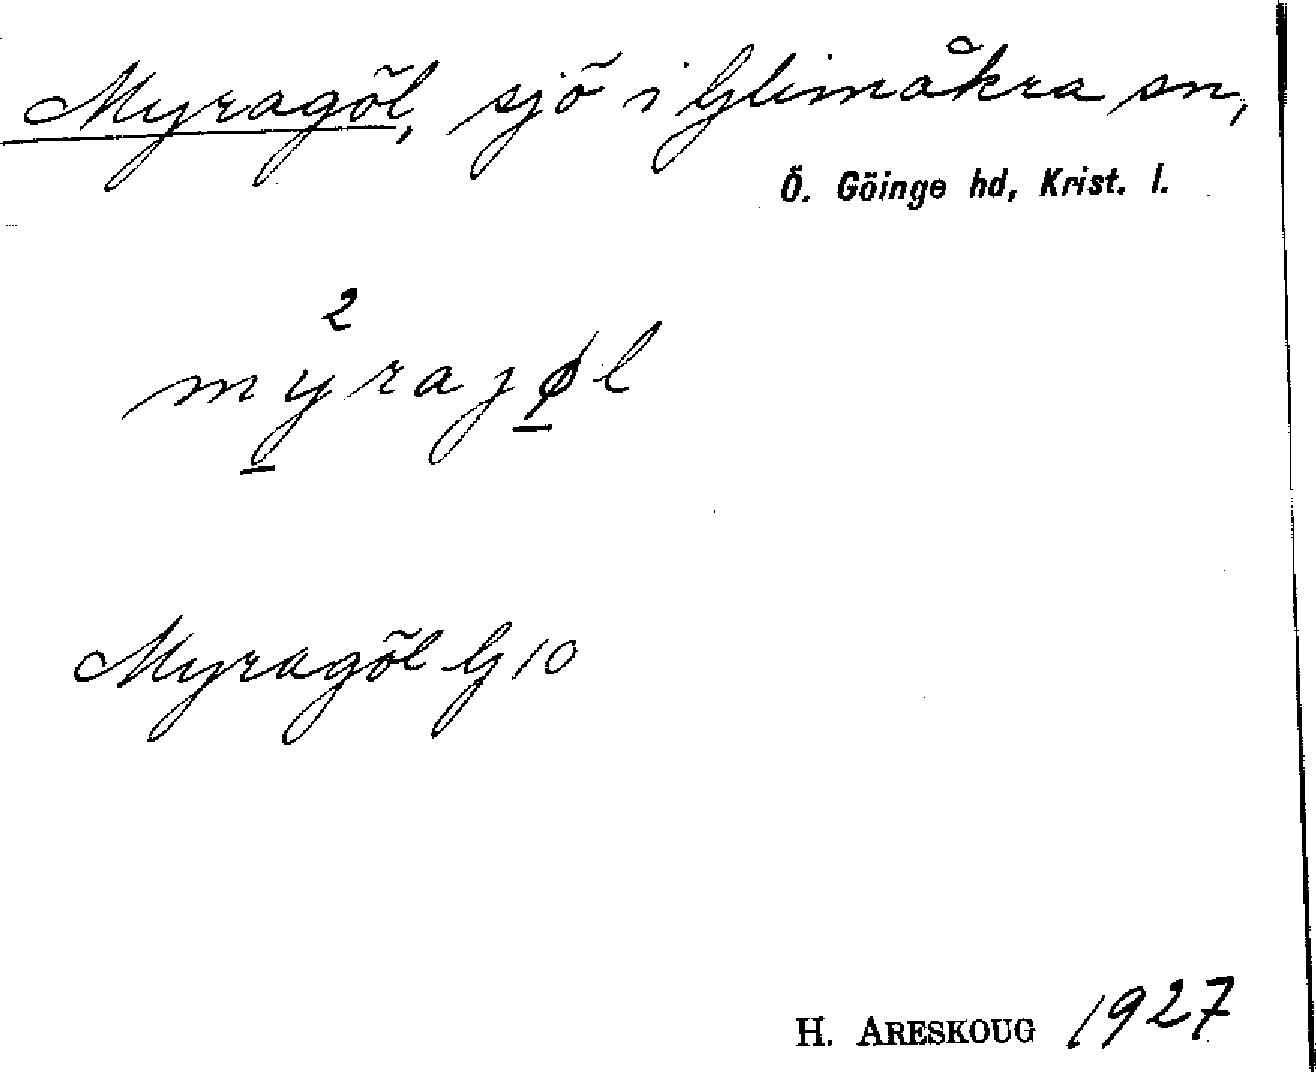 Myragöl, sjö i Glimåkra sn,
Ö. Göinge hd, Krist. l.
2
myrajøl
Myragöl G 10
H. ARESKOUG 1927